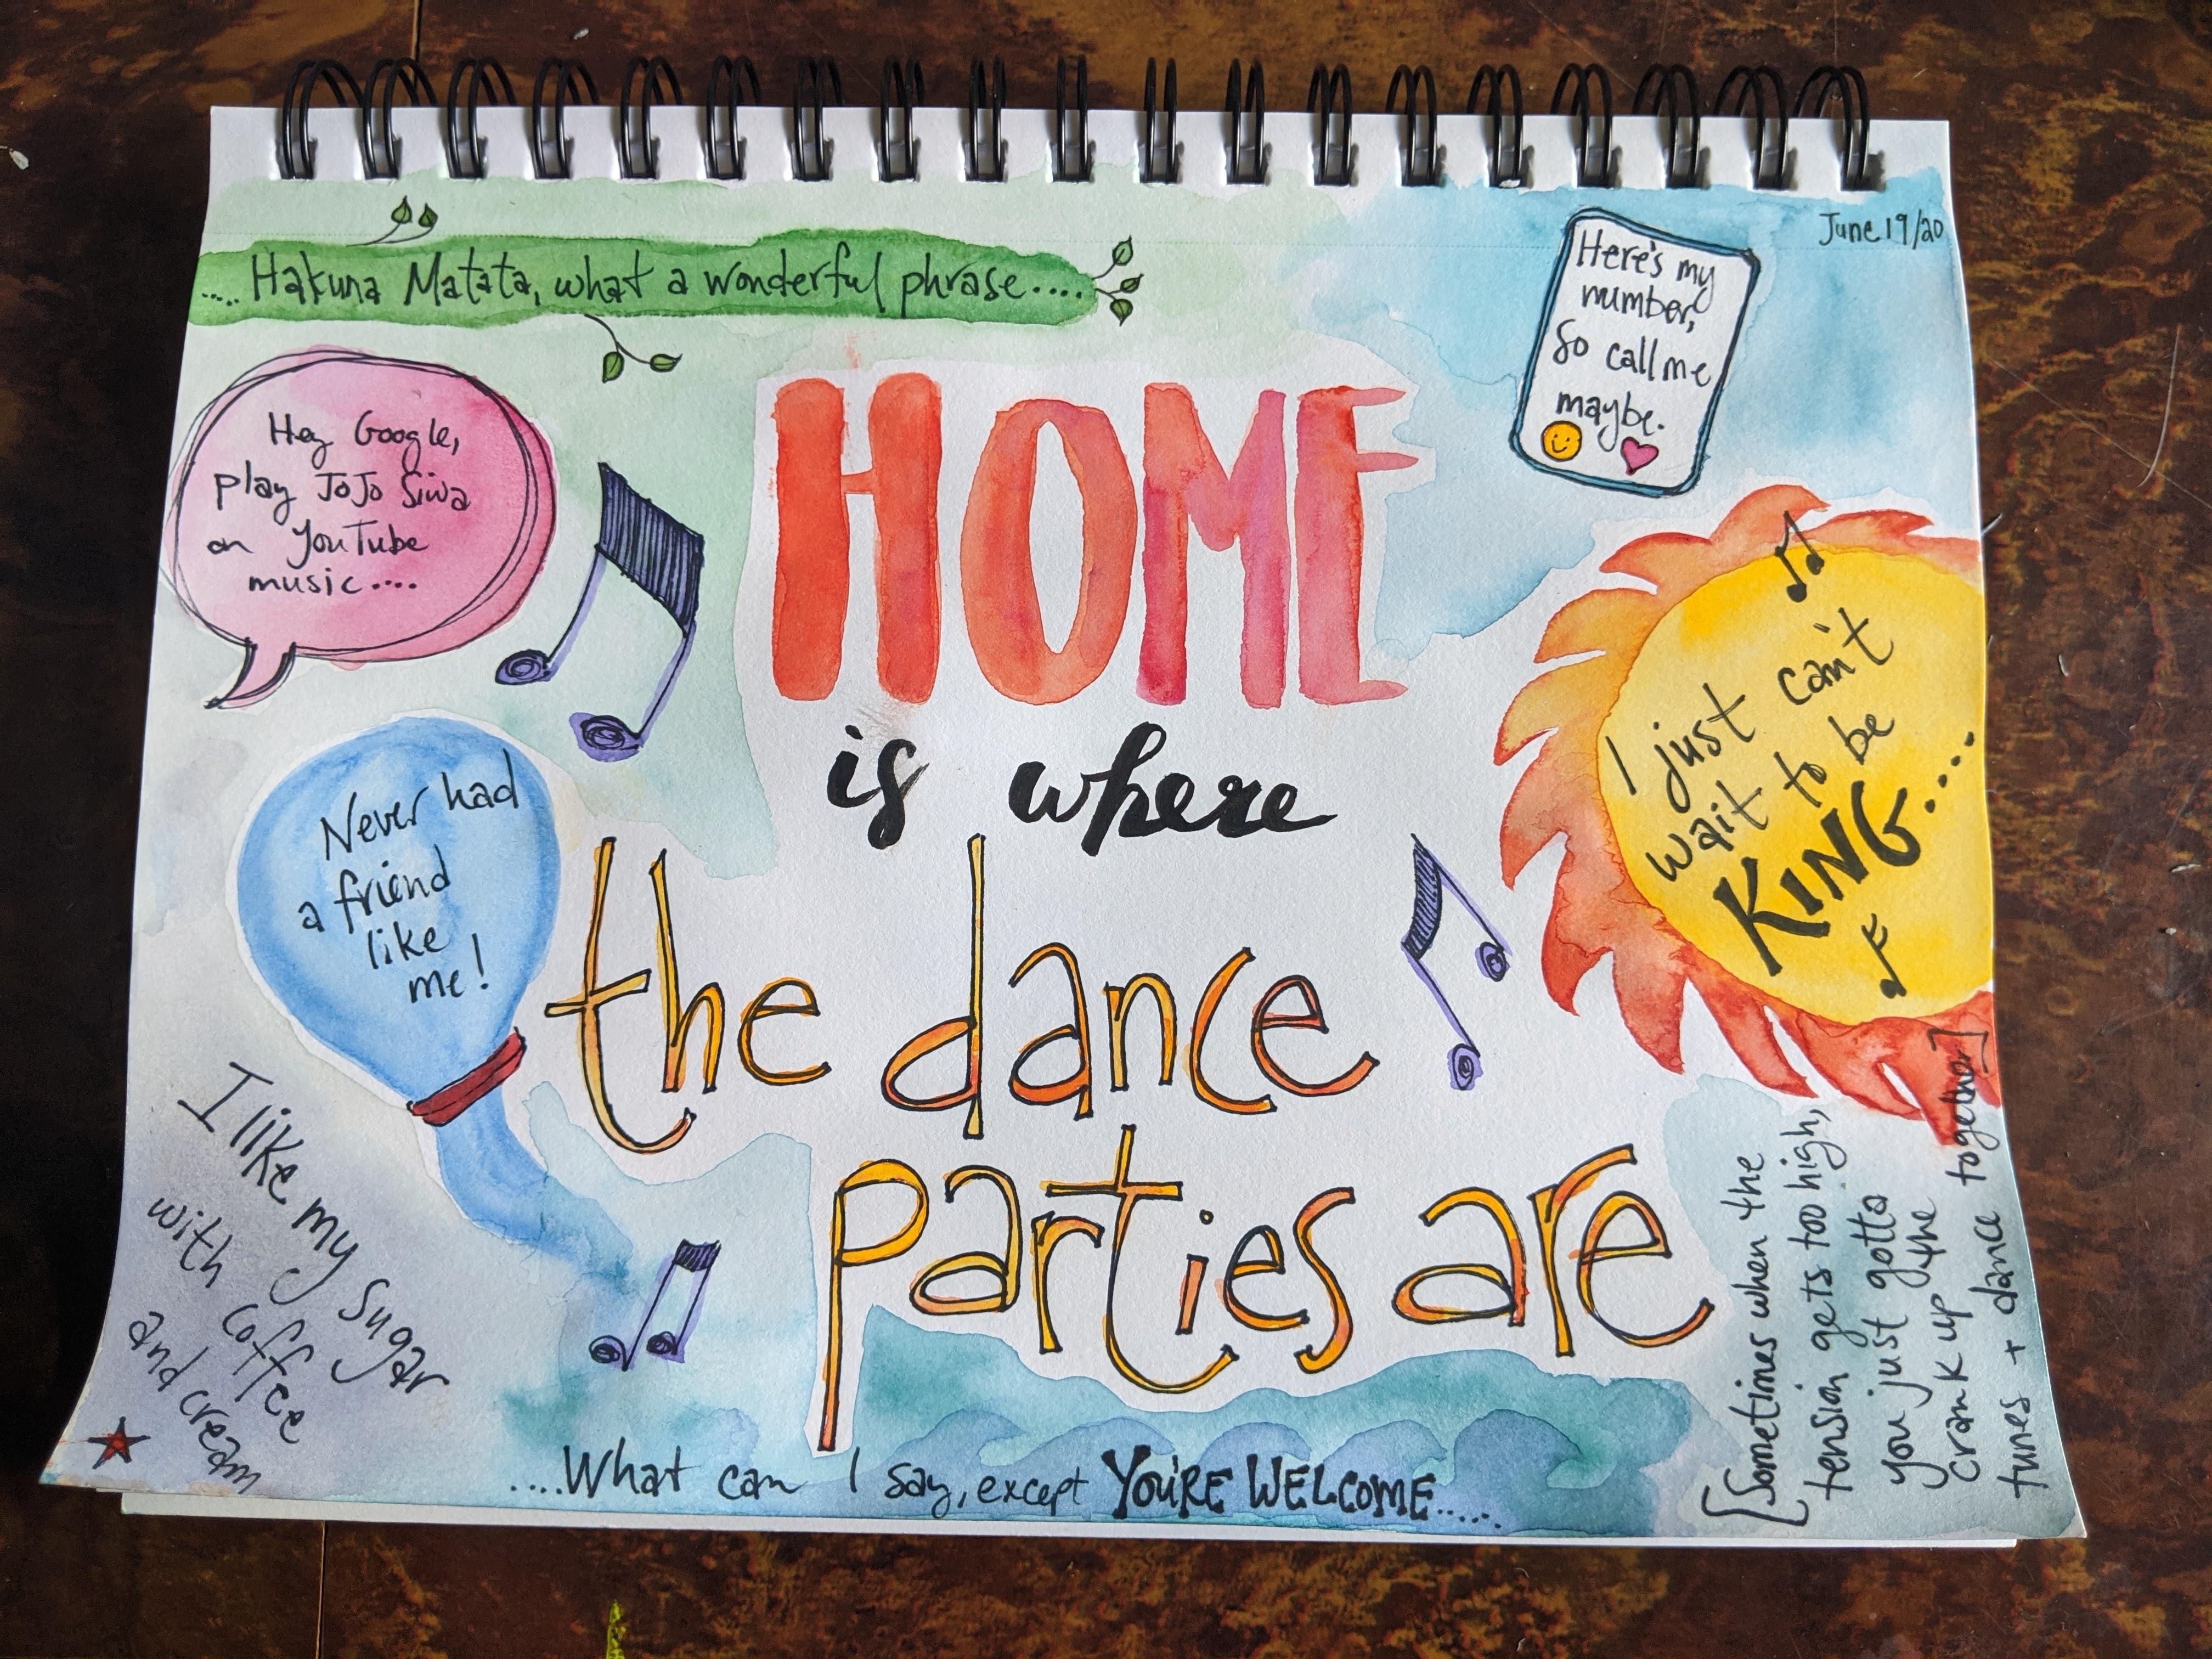 June 19/20
....Hakuna Matata, what a wonderful phrase....
Here's my
number,
So call me
maybe.
Hey Google,
play JoJo Siwa
on YouTube
music....
HOME
is where
the dance
parties are
I just can't
wait to be
KING....
Never had
a friend
like
me!
I like my sugar
with coffee
and cream
....What can I say, except YOU'RE WELCOME.....
[Sometimes when the
tension gets too high,
you just gotta
crank up the
tunes + dance together]